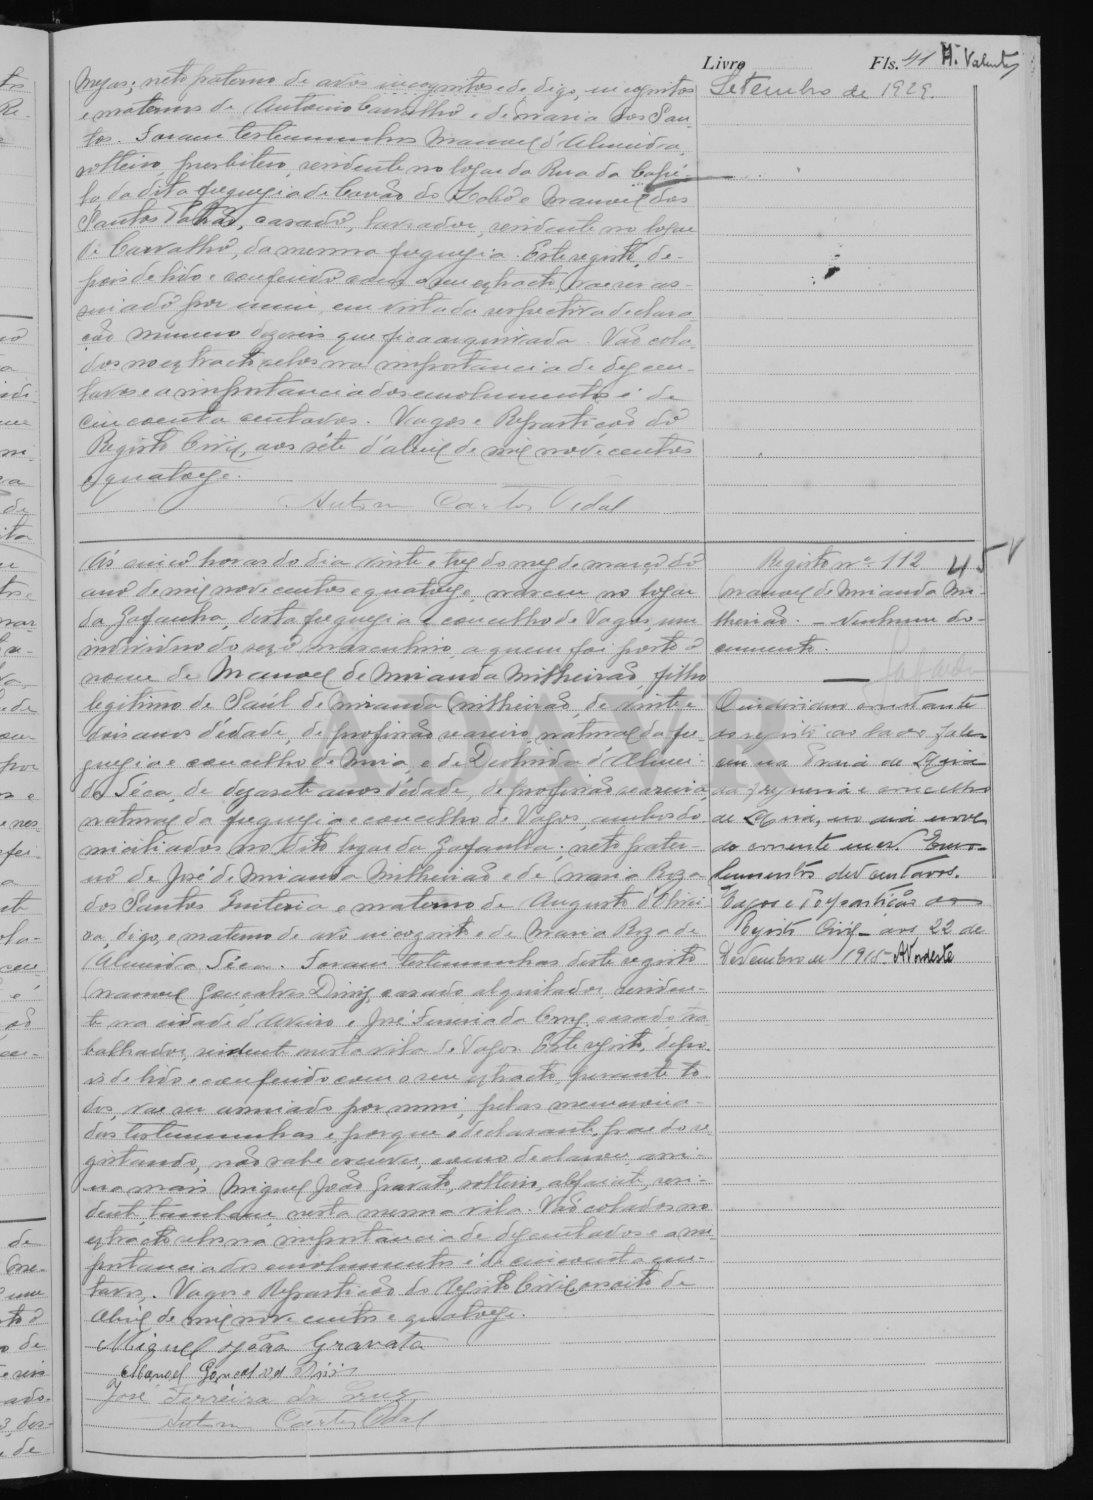 Livro Fls. 41 A. Valente
negas; neto paterno de avós incognitos e de digo, incognitos
e maternos de Antonio Carvalho e de Maria dos San-
tos. Foram testemunhas Manoel d'Almeida,
solteiro, presbitero, residente no logar da Rua da Capé-
la, da dita freguezia de Covão do Lobo e Manoel dos
Santos, casado, lavrador, residente no logar
de Carvalho, da mesma freguezia. Este registo, de-
pois de lido e conferido com o seu extracto, vae ser as-
sinado por mim, em vista da respectiva declara
ção numero dezaseis que fica arquivada. Vão cola
dos no extracto selos na importancia de dez cen-
tavos e a importancia dos emolumentos é de
cincoenta centavos. Vagos e Repartição do
Registo Civil, aos sete d'abril de mil nove centos
e quatorze.
Carlos Vidal
Setembro de 1929.
Ás cinco horas do dia vinte e trez do mez de março do
ano de mil nove centos e quatorze, nasceu no logar
da Gafanha, desta freguezia e concelho de Vagos, um
individuo do sexo masculino, a quem foi posto o
nome de Manoel de Miranda Milheirão, filho
legitimo de Saúl de Miranda Milheirão, de vinte e
dois anos d'edade, de profissão seareiro, natural da fre-
guezia e concelho de Mira, e de Deolinda d'Almei-
da Séca, de dezasete anos d'edade, de profissão seareira,
natural da freguezia e concelho de Vagos, ambos do
miciliados no dito logar da Gafanha; neto pater-
no de José de Miranda Milheirão e de Maria Roza
dos Santos e materno de Augusto d'Olivei
ra, digo, e materno de avô incognito e de Maria Roza de
Almeida Séca. Foram testemunhas deste registo
Manoel Gonçalves Diniz, casado, alquilador, residen-
te na cidade d'Aveiro e José Ferreira da Cruz, casado, tra
balhador, residente nesta vila de Vagos. Este registo, depo-
is de lido e conferido com o seu extracto, perante to
dos, vae ser assinado por mim, pelas menciona-
das testemunhas e porque o declarante, pae do re
gistando, não sabe escrever, como declarou, assi-
na mais Miguel João Gravato, solteiro, alfaiate, resi-
dente, tambem, nesta mesma vila. Vão colados no
extracto selos na importancia de dez centavos e a im
portancia dos emolumentos é de cincoenta cen-
tavos. Vagos e Repartição do Registo Civil, aos oito de
Abril de mil nove centos e quatorze.
Miguel João Gravato
Manoel Gonçalves Diniz
José Ferreira da Cruz
Carlos Vidal
Registo nº 112 45 v
Manoel de Miranda Mi-
lheirão. — Nenhum do-
cumento.
O individuo constante
do registo ao lado, fale-
ceu na Praia de Mira
da freguezia e concelho
de Mira, no dia nove
do corrente mez. Emo-
lumentos dez centavos.
Vagos e Repartição do
Registo Civil aos 22 de
Dezembro de 1915
ADAVR